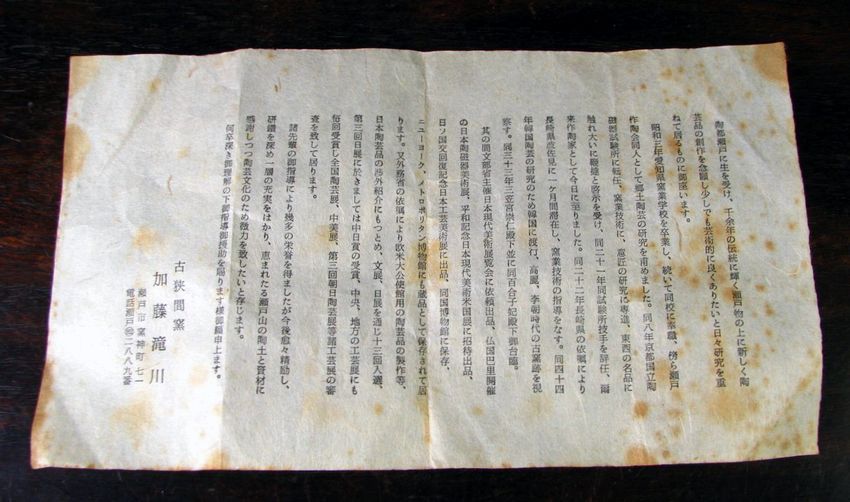 陶都瀬戸に生を受け、千余年の伝統に輝く瀬戸物の上に新しく陶
芸品の創作を念願し少しでも芸術的に良くありたいと日々研究を重
ねて居るものに御座います。
昭和三年愛知県窯業学校を卒業し、続いて同校に奉職、傍ら瀬戸
作陶会同人として郷土陶芸の研究を甫めました。同八年京都国立陶
磁器試験所に転任、窯業技術に、意匠の研究に専進、東西の名品に
触れ大いに啓発と啓示を受け、同二十一年同試験所技手を辞任、爾
来作陶家として今日に至りました。同二十二年長崎県の依嘱により
長崎県波佐見に一ケ月間滞在し、窯業技術の指導をなす。同四十四
年韓国陶芸の研究のため韓国に渡行、高麗、李朝時代の古窯跡を視
察す。同三十三年三笠宮崇仁殿下並に同百合子妃殿下御台臨。
其の間文部省主催日本現代美術展覧会に依頼出品、仏国巴里開催
の日本陶磁器美術展、平和記念日本現代美術米国展に招待出品、
日ソ国交回復記念日本工芸美術展に出品、同国博物館に保存、
ニューヨーク、メトロポリタン博物館にも蔵品として保存されて居
ります。又外務省の依嘱により欧米大公使館用の陶芸品の製作等、
日本陶芸品の渉外紹介にもつとめ、文展、日展を通じ十三回入選、
第三回日展に於きましては中日賞の受賞、中央、地方の工芸展にも
毎回受賞し全国陶芸展、中美展、第三回朝日陶芸展等諸工芸展の審
査を致して居ります。
諸先輩の御指導により幾多の栄誉を得ましたが今後愈々精励し、
研鑽を深め一層の充実をはかり、恵まれたる瀬戸山の陶土と資材に
感謝しつつ陶芸文化のため微力を致したいと存じます。
何卒深き御理解の下御指導御援助を賜ります様御願申上ます。
古狭間窯
加藤滝川
瀬戸市窯神町七一
電話瀬戸㉘二八八九番